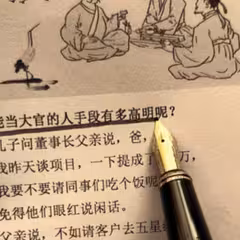 能当大官的人手段有多高明呢？
儿子问董事长父亲说，爸，
我昨天谈项目，一下提成了 万，
我要不要请同事们吃个饭呢
免得他们眼红说闲话。
父亲说，不如请客户去五星